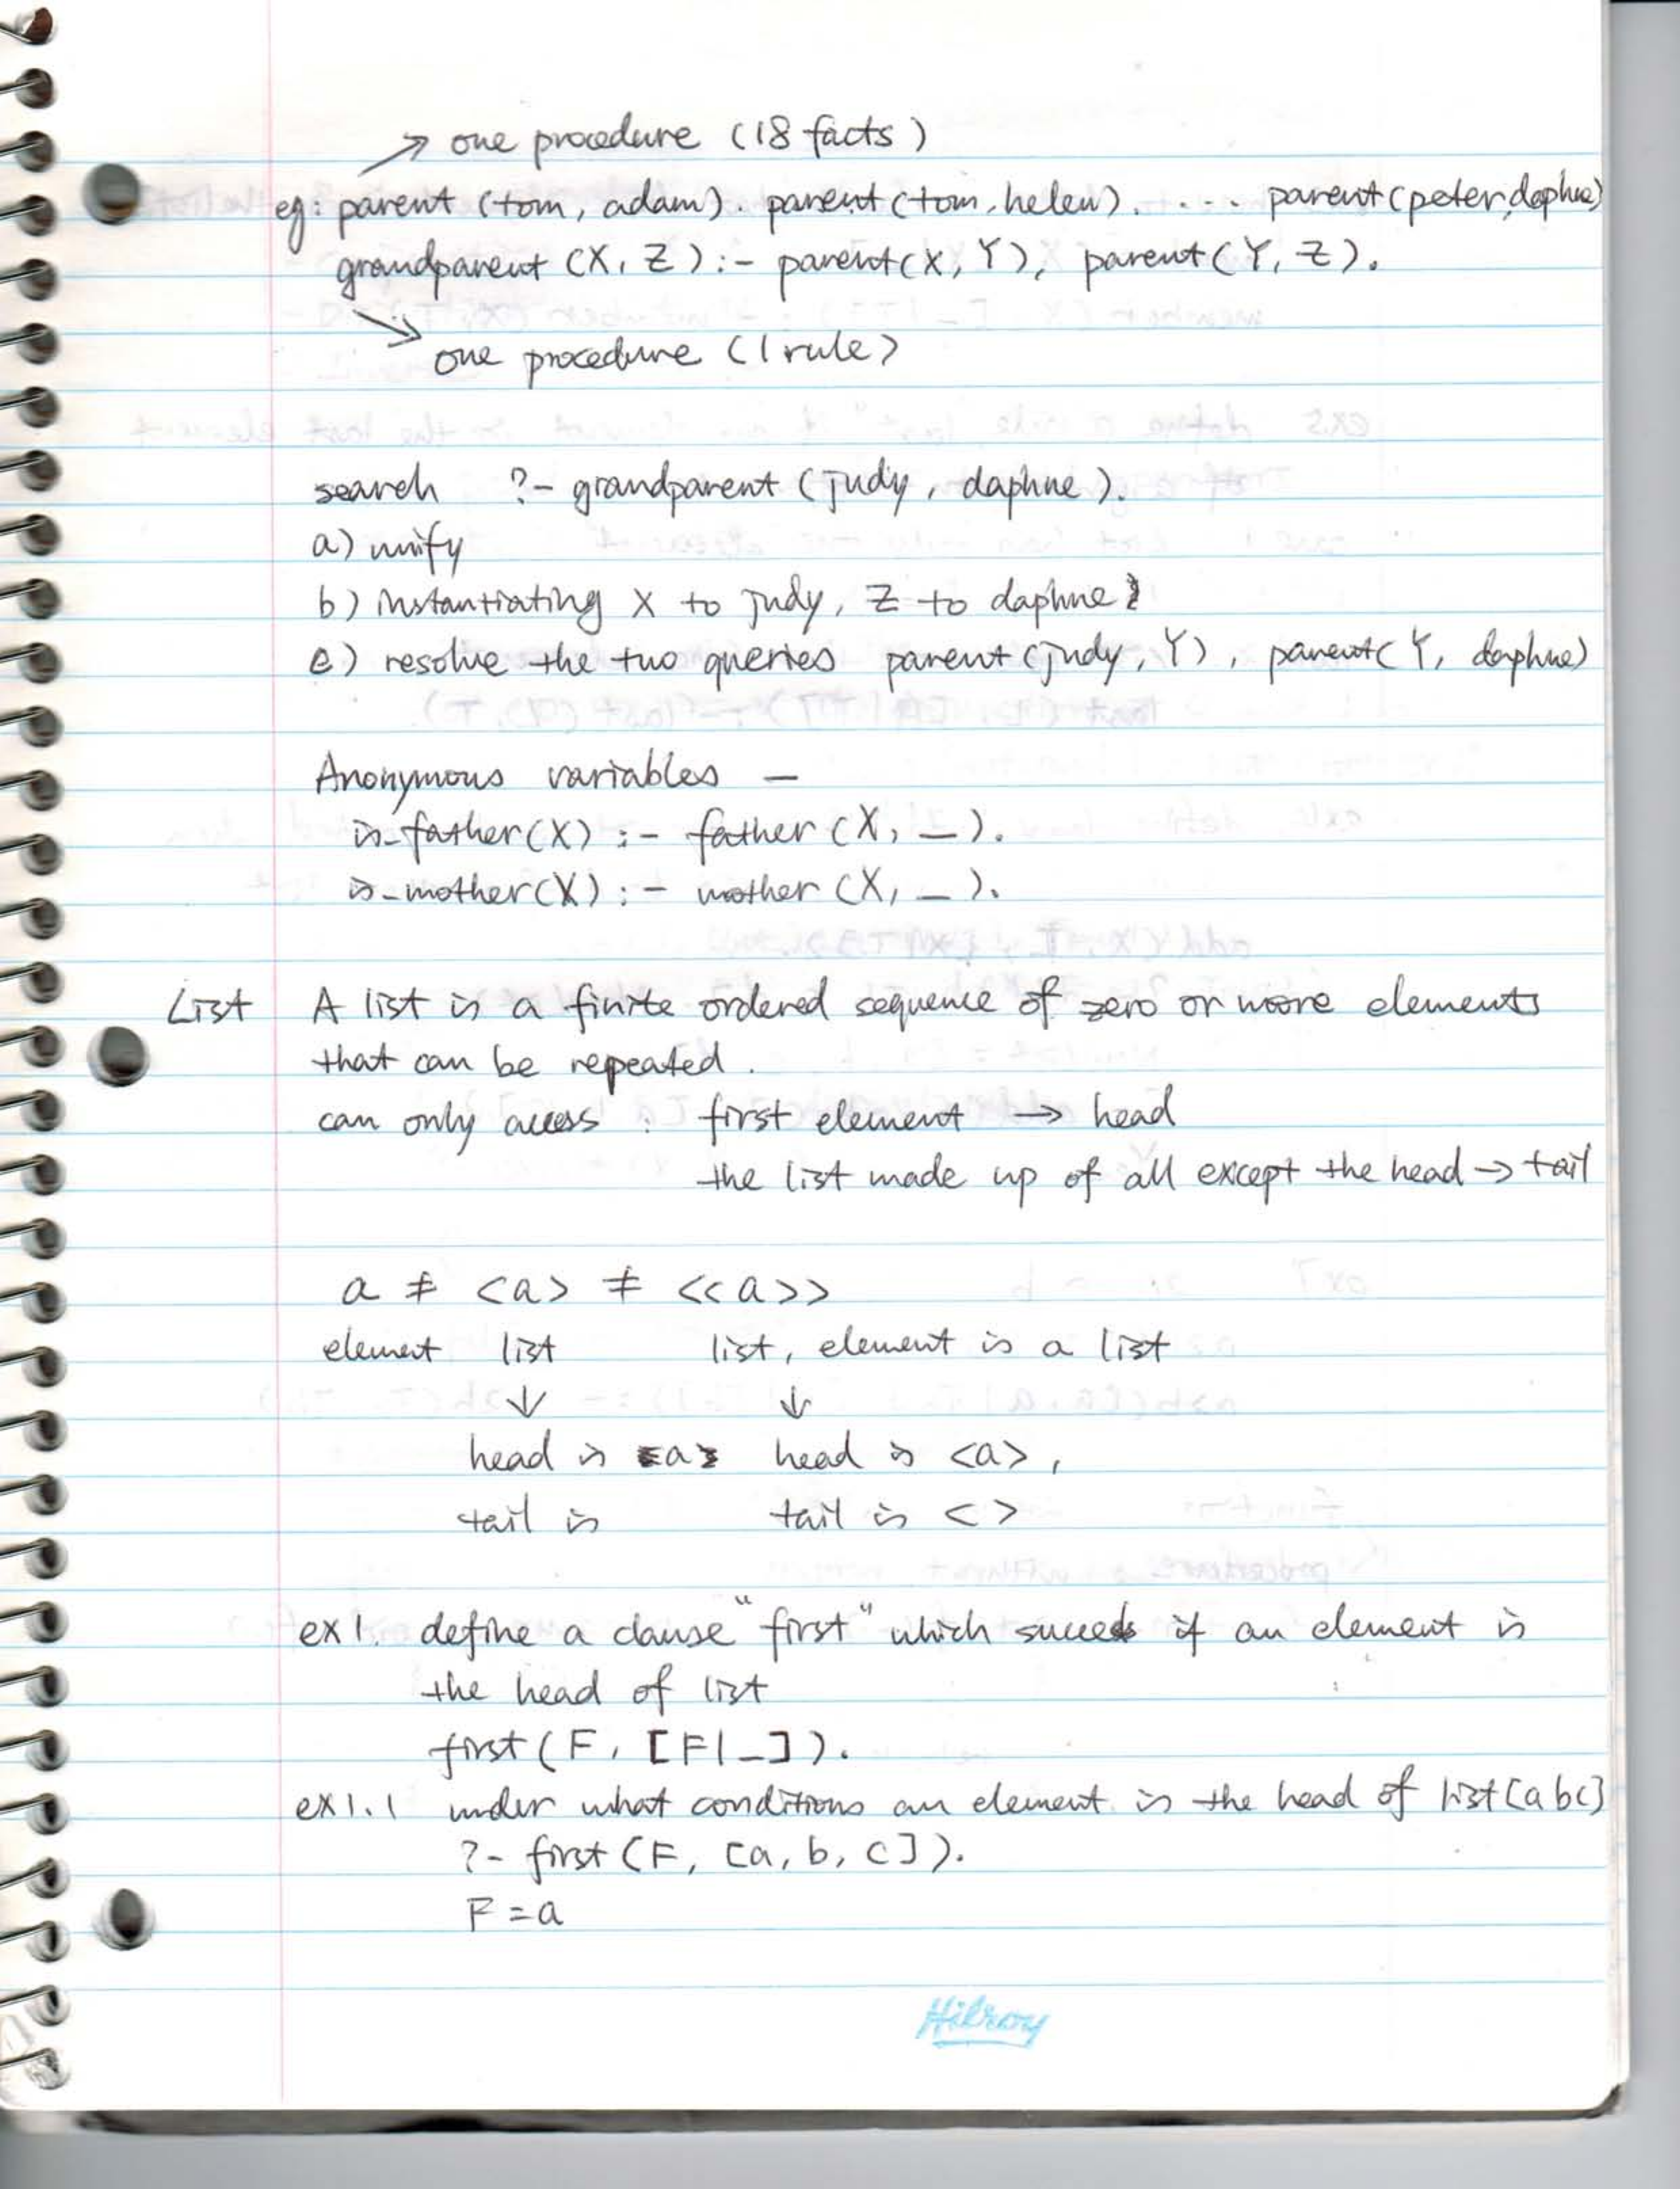 → one procedure (18 facts)
eg: parent (tom, adam). parent (tom, helen). ... parent (peter, daphne)
grandparent (X, Z) :- parent(X, Y), parent(Y, Z).
→ one procedure (1 rule)
search ?- grandparent (judy, daphne).
a) unify
b) instantiating X to judy, Z to daphne
c) resolve the two queries parent (judy, Y), parent(Y, daphne)
Anonymous variables _
is_father(X) :- father (X, _).
is_mother(X) :- mother (X, _).
List A list is a finite ordered sequence of zero or more elements
that can be repeated.
can only access : first element → head
the list made up of all except the head → tail
a ≠ <a> ≠ <<a>>
element list list, element is a list
↓ ↓
head is a head is <a>,
tail is tail is < >
ex1. define a clause "first" which succeeds if an element is
the head of list
first (F, [F|_]).
ex1.1 under what conditions an element is the head of list [abc]
?- first (F, [a, b, c]).
F = a
Hilroy